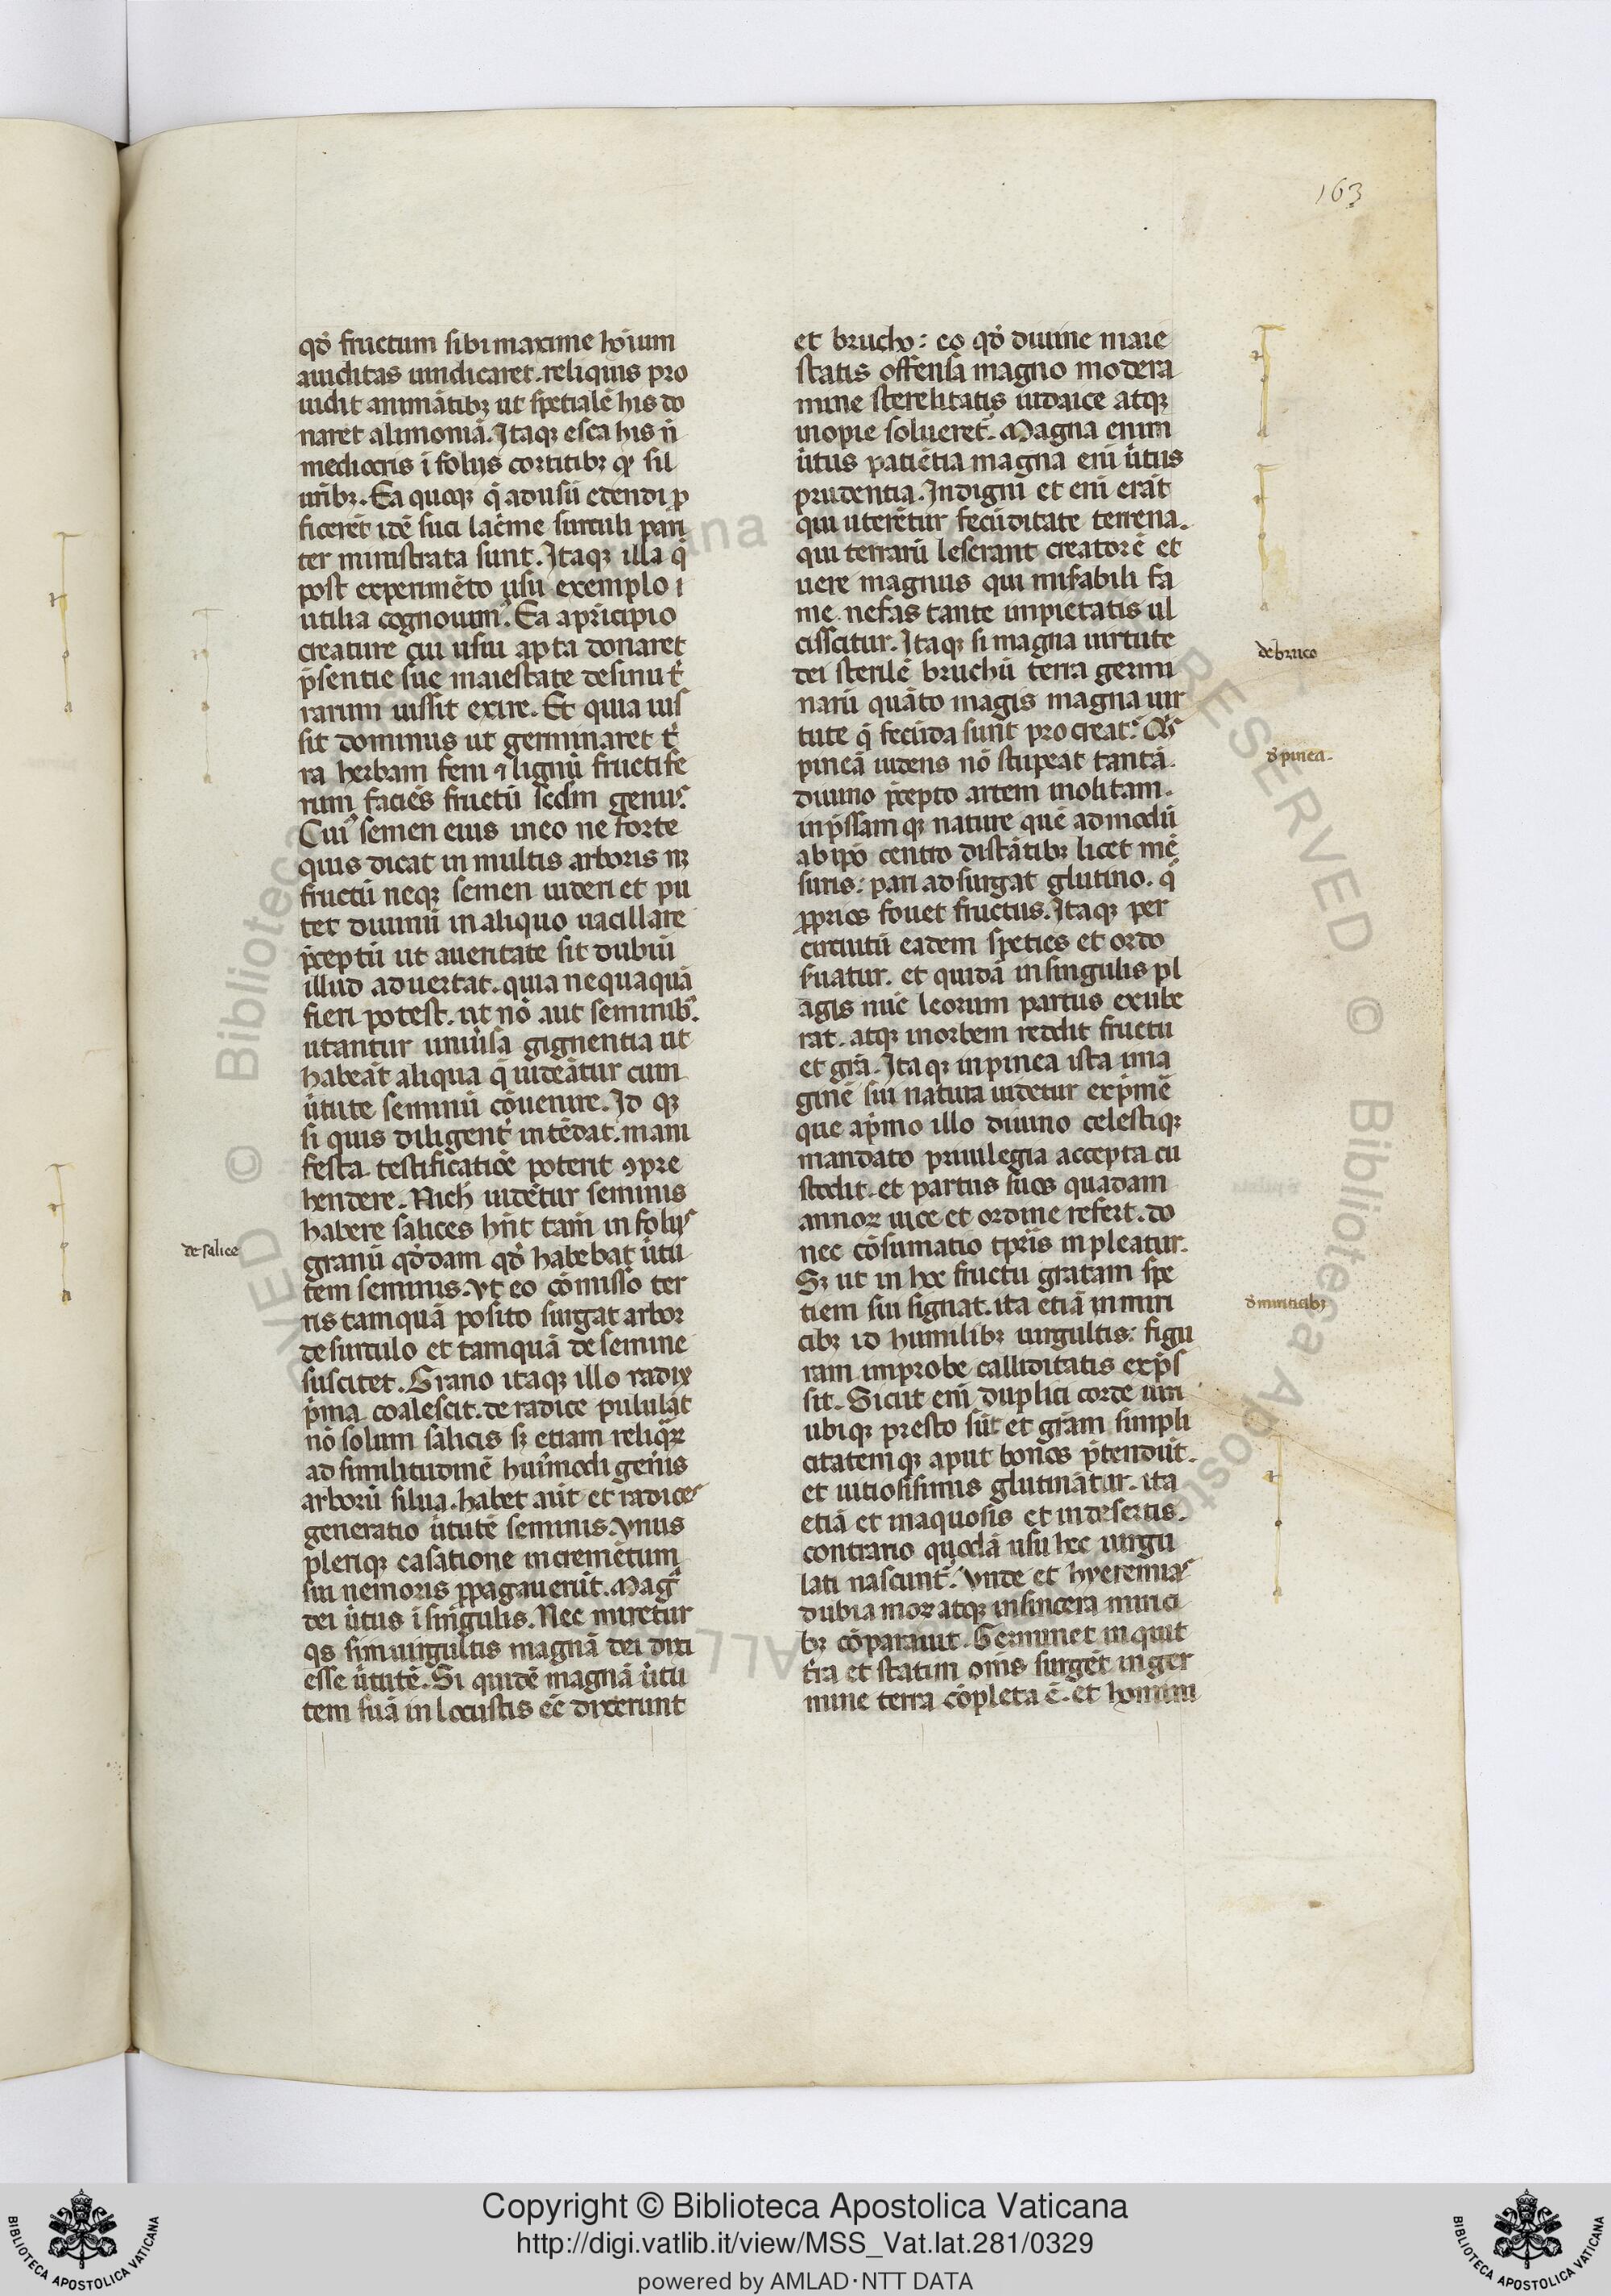 163
qđ fructum sibi maxime hoı̄um
auiditas uindicaret. reliquis pro
uidit animātibꝫ ut spetialē his do
naret alimoniā. Itaqꝫ esca his n̄
mediocris ī folijs cortitibꝫ qꝫ sil
uribꝫ. Ea quoqꝫ q̄ ad usū edendi ꝓ
ficerēt idē suci lac̄me surculi pari
ter ministrata sunt. Itaqꝫ illa q̄
post experimēto usu exemplo ı
utilia cognouim᷒. Ea apricipio
creature cui usui apta donaret
p̄sentie sue maiestate desinu t̄
rarum iussit exire. Et quia ius
sit dominus ut germinaret t̄
ra herbam feni ⁊ lignū fructife
rum faciēs fructū scdm genus.
Cui᷒ semen eius in eo ne forte
quis dicat in multis arboris nꝫ
fructū neqꝫ semen uideri et pu
tet diuinū in aliquo uacillare
p̄ceptū ut aueritate sit dubiū
illud aduertat. quia nequaquā
fieri potest. ut nō aut seminib᷒.
utantur uniūsa gignentia ut
habeāt aliqua q̄ uideātur cum
ūtute seminū cōuenire. Id qꝫ
si quis diligent̄ intēdat. mani
festa testificatiōe poterit ꝯpre
hendere. Nich̄ uidētur seminis
habere salices hn̄t tam̄ in folijs
granū qđdam qđ habebat ūtu
tem seminis. Vt eo cōmisso ter
ris tamquā posito surgat arbor
de surculo et tamquā de semine
suscitet. Grano itaqꝫ illo radix
p̄ma coalescit. de radice pululat
nō solum salicis sꝫ etiam reliqꝝ
ad similitudinē hui᷒modi genus
arborū silua. habet aūt et radices
generatio ūtutē seminis. Vnus
pleriqꝫ casatione incremētum
sui nemoris ꝓpagauerūt. Maḡ
dei ūtus ī singulis. Nec miretur
qs si in uirgultis magnā dei dixi
esse ūtutē. Si quidē magnā ūtu
tem suā in locustis eē dixerunt
de salice
et brucho: eo qđ diuine maie
statis offensa magno modera
mine sterelitatis iudaice atqꝫ
inopie solueret. Magna enim
ūtus patiētia magna eni ūtus
prudentia. Indigni et eni erāt
qui uterētur fecūditate terrena.
qui terrarū leserant creatorē et
uere magnus qui mirabili fa
me. nefas tante impietatis ul
ciscitur. Itaqꝫ si magna uirtute
dei sterilē bruchū terra germi
narū quāto magis magna uir
tute q̄ fecūda sunt procreat᷒. Qs
pineā uidens nō stupeat tantā.
diuino p̄cepto artem inolitam.
inp̄ssam qꝫ nature quē admodū
ab ipo centro distātibꝫ licet mē
suris: pari adsurgat glutino. q̄
ꝓprios fouet fructus. Itaqꝫ per
circuitū eadem speties et ordo
s̄uatur. et quidā in singulis pl
agis nuc̄ leorum partus exube
rat. atqꝫ inorbem reddit fructu
et grā. Itaqꝫ in pinea ista ima
ginē sui natura uidetur exp̄mē
que ap̄mo illo diuino celestiqꝫ
mandato priuilegia accepta cu
stodit. et partus suos quadam
annoꝝ uice et ordine refert. do
nec cōsumatio tp̄ris inpleatur.
Sꝫ ut in hoc fructu gratam spe
tiem sui signat. ita etiā in miri
cibꝫ id humilibꝫ uirgultis: figu
ram improbe calliditatis exp̄s
sit. Sicut eni duplici corde uiri
ubiqꝫ presto sūt et grām simpli
citatem qꝫ aput bonos p̄tendūt.
et uitiosisimis glutinātur. ita
etiā et inaquosis et indesertis.
contrario quodā usu hec uirgu
lati nascunt̄. Vnde et hyeremias
dubia moꝝ atqꝫ insincera mirici
bꝫ cōparauit. Germinet inquit
t̄ra et statim om̄is surgēt in ger
mine terra cōpleta ē. et homini
de bruco
đ pinea.
đ miricibꝫ
Copyright © Biblioteca Apostolica Vaticana
http://digi.vatlib.it/view/MSS_Vat.lat.281/0329
powered by AMLAD·NTT DATA
BIBLIOTECA APOSTOLICA VATICANA
BIBLIOTECA APOSTOLICA VATICANA